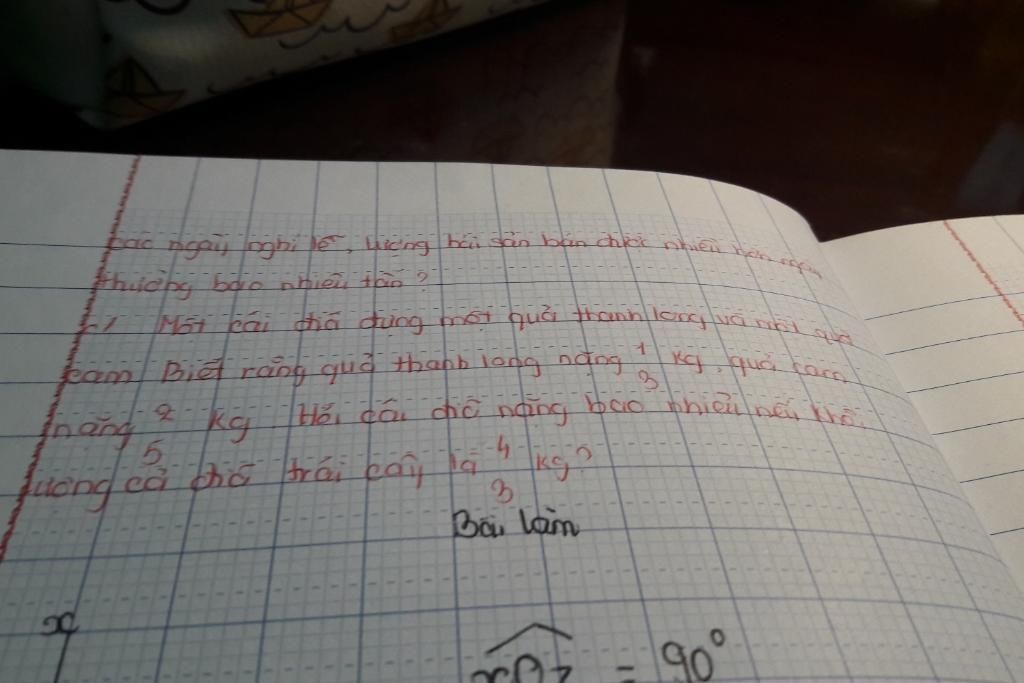 các ngày nghỉ lễ, lượng hải sản bán chơi nhiều hơn ngày
thường bao nhiêu tấn?
c/ Một cái chỗ đựng một quả thanh long và một quả
cam. Biết rằng quả thanh long nặng 1/3 kg, quả cam
nặng 2/5 kg. Hỏi cái chỗ nặng bao nhiêu nếu khối
lượng cả chỗ trái cây là 4/3 kg?
Bài làm
x
xOz = 90°